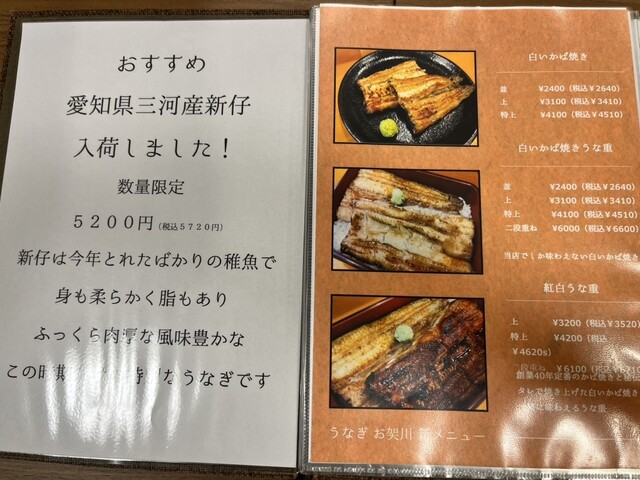 おすすめ
愛知県三河産新仔
入荷しました！
数量限定
５２００円（税込５７２０円）
新仔は今年とれたばかりの稚魚で
身も柔らかく脂もあり
ふっくら肉厚な風味豊かな
この時期 なうなぎです
白いかば焼き
並 ¥2400（税込¥2640）
上 ¥3100（税込¥3410）
特上 ¥4100（税込¥4510）
白いかば焼きうな重
並 ¥2400（税込¥2640）
上 ¥3100（税込¥3410）
特上 ¥4100（税込¥4510）
二段重ね ¥6000（税込¥6600）
当店でしか味わえない白いかば焼き
紅白うな重
上 ¥3200（税込¥3520）
特上 ¥4200（税込
¥4620s）
段重ね ¥6100（税込¥6710
創業40年定番のかば焼きと
タレで焼き上げた白いかば焼き
味わえるうな重
うなぎ お 川 メニュー